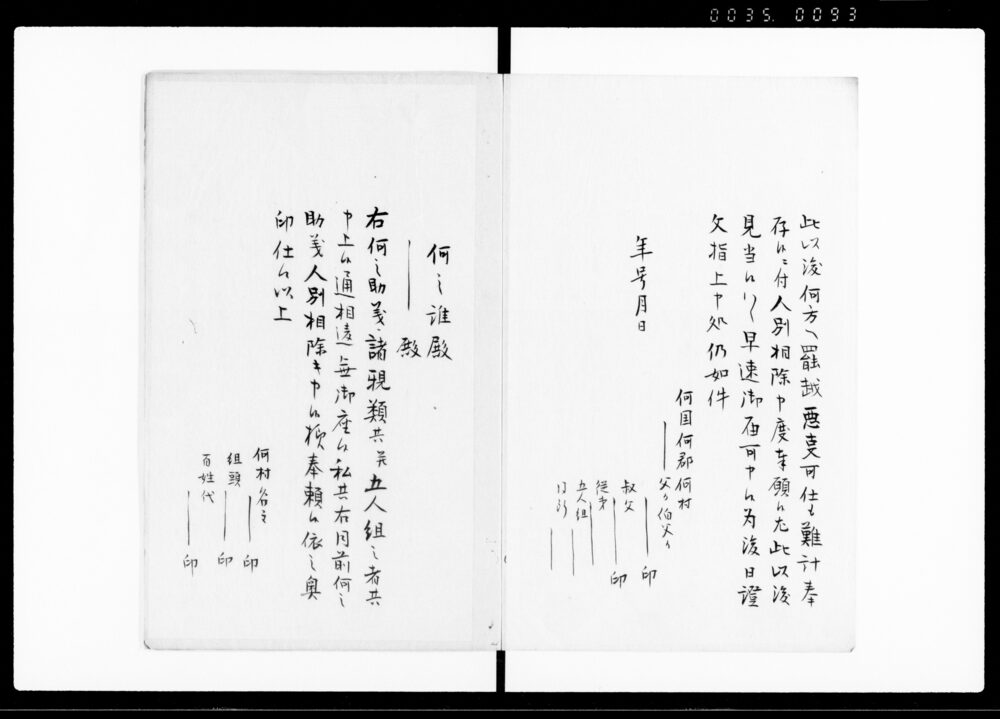 0035. 0093
此以後何方へ罷越悪支可仕も難計奉
存候ニ付人別相除申度奉願候尤此以後
見当候ハヽ早速御届可申候為後日證
文指上申処仍如件
年号月日
何国何郡何村
父ゟ伯父ゟ
印
叔父
印
従弟
五人組
何之誰殿
殿
右何之助義諸親類共并五人組之者共
申上候通相違無御座候私共右同前何之
助義人別相除キ申候様奉頼候依之奥
印仕候以上
何村名主
印
組頭
印
百姓代
印